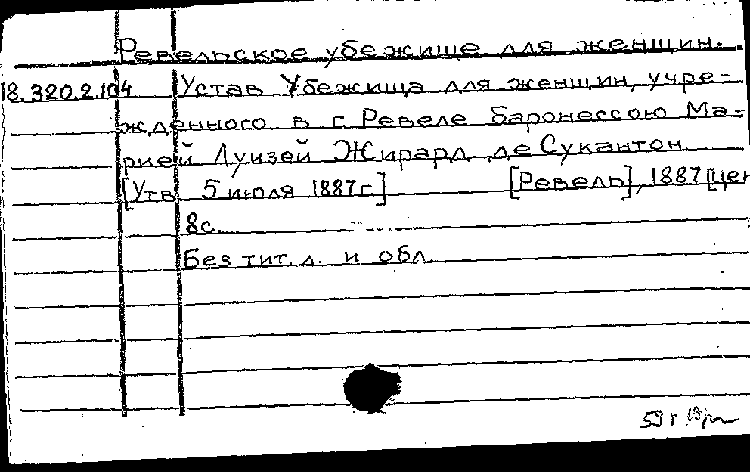 Ревельское убежище для женщин.
18.320.2.104 Устав Убежища для женщин, учре-
жденного в г. Ревеле баронессою Ма-
рией Луизей Жирард де Сукантон.
[Утв. 5 июля 1887 г.] [Ревель], 1887 [цен
8с.
Без тит. л. и обл.
59 г.